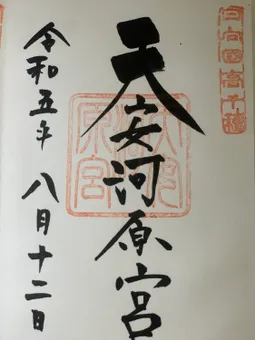 日向國高千穂
天安河原宮
令和五年 八月十二日